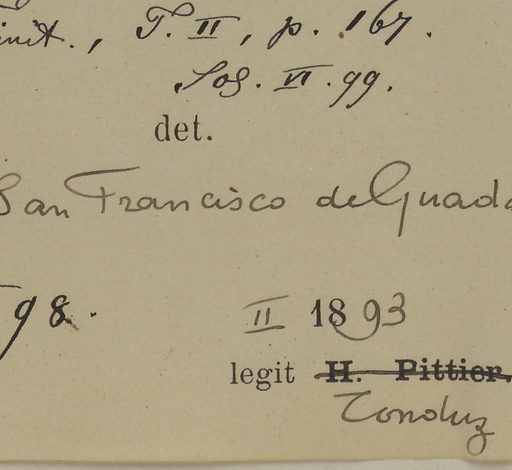 init., T. II, p. 167.
Log. VI. 99.
det.
San Francisco de Guada
98.
II 1893
legit H. Pittier.
Tonduz